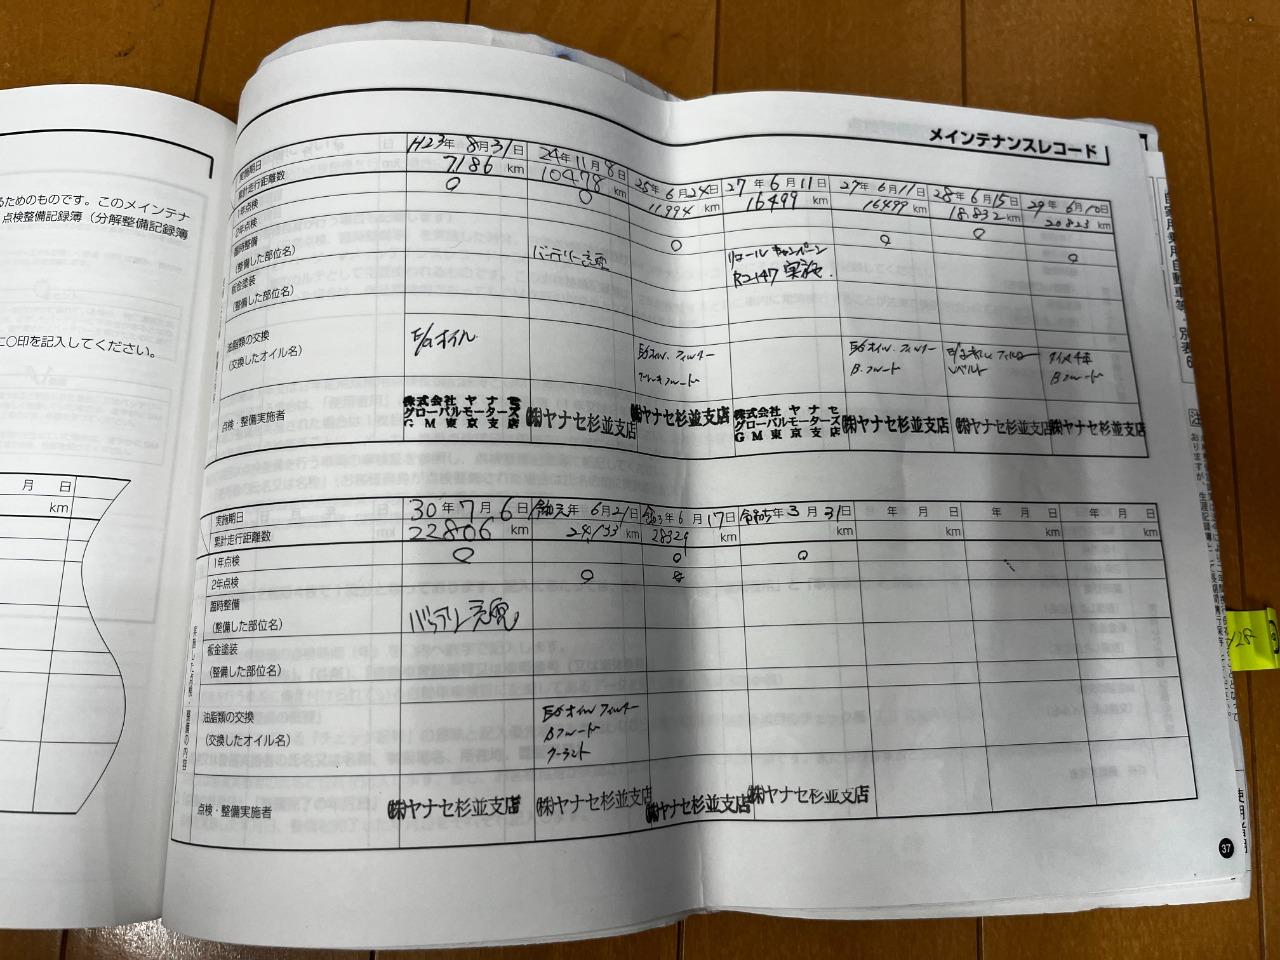 メインテナンスレコード
実施期日 H23年 8月31日 24年11月8日 25年 6月24日 27年 6月11日 27年 6月11日 28年 6月15日 29年 6月10日
累計走行距離数 7186 km 10478 km 11994 km 16499 km 16499 km 18,832 km 20823 km
1年点検 ○ ○ ○
2年点検 ○ ○ ○
臨時整備
(整備した部位名) バッテリー充電 リコールキャンペーン
実施.
鈑金塗装
(整備した部位名)
油脂類の交換
(交換したオイル名) E/Gオイル E/Gオイル.フィルター E/Gオイル.フィルター
ブレーキフルード B.フルード Vベルト Bフルード
点検・整備実施者 株式会社 ヤナセ
グローバルモーターズ
GM東京支店 ㈱ヤナセ杉並支店 ㈱ヤナセ杉並支店 株式会社 ヤナセ
グローバルモーターズ
GM東京支店 ㈱ヤナセ杉並支店 ㈱ヤナセ杉並支店 ㈱ヤナセ杉並支店
実施期日 30年7月6日 令和元年 6月21日 令和3年6月17日 令和5年3月31日 年 月 日 年 月 日 年 月 日
累計走行距離数 22806 km 24,133 km 28329 km km km km km
1年点検 ○ ○ ○
2年点検 ○
臨時整備
(整備した部位名) バッテリー充電
鈑金塗装
(整備した部位名)
油脂類の交換
(交換したオイル名) E/Gオイル フィルター
Bフルード
クーラント
点検・整備実施者 ㈱ヤナセ杉並支店 ㈱ヤナセ杉並支店 ㈱ヤナセ杉並支店 ㈱ヤナセ杉並支店
実施した点検・整備の内容
37
るためのものです。このメインテナ
点検整備記録簿（分解整備記録簿
に○印を記入してください。
月 日
km
自家用乗用自動車等 別表6
注